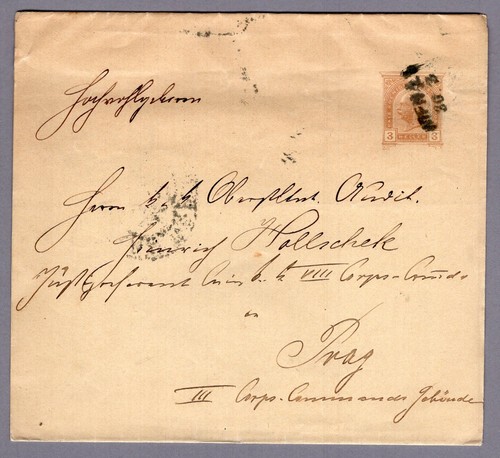 Hochwohlgeboren
3 HELLER 3
Herrn k. k. Oberstltnt. Audit.
Heinrich Hollschek
Justizreferent beim k. k. VIII Corps-Comdo
in
Prag
III Corps-Commando Gebäude